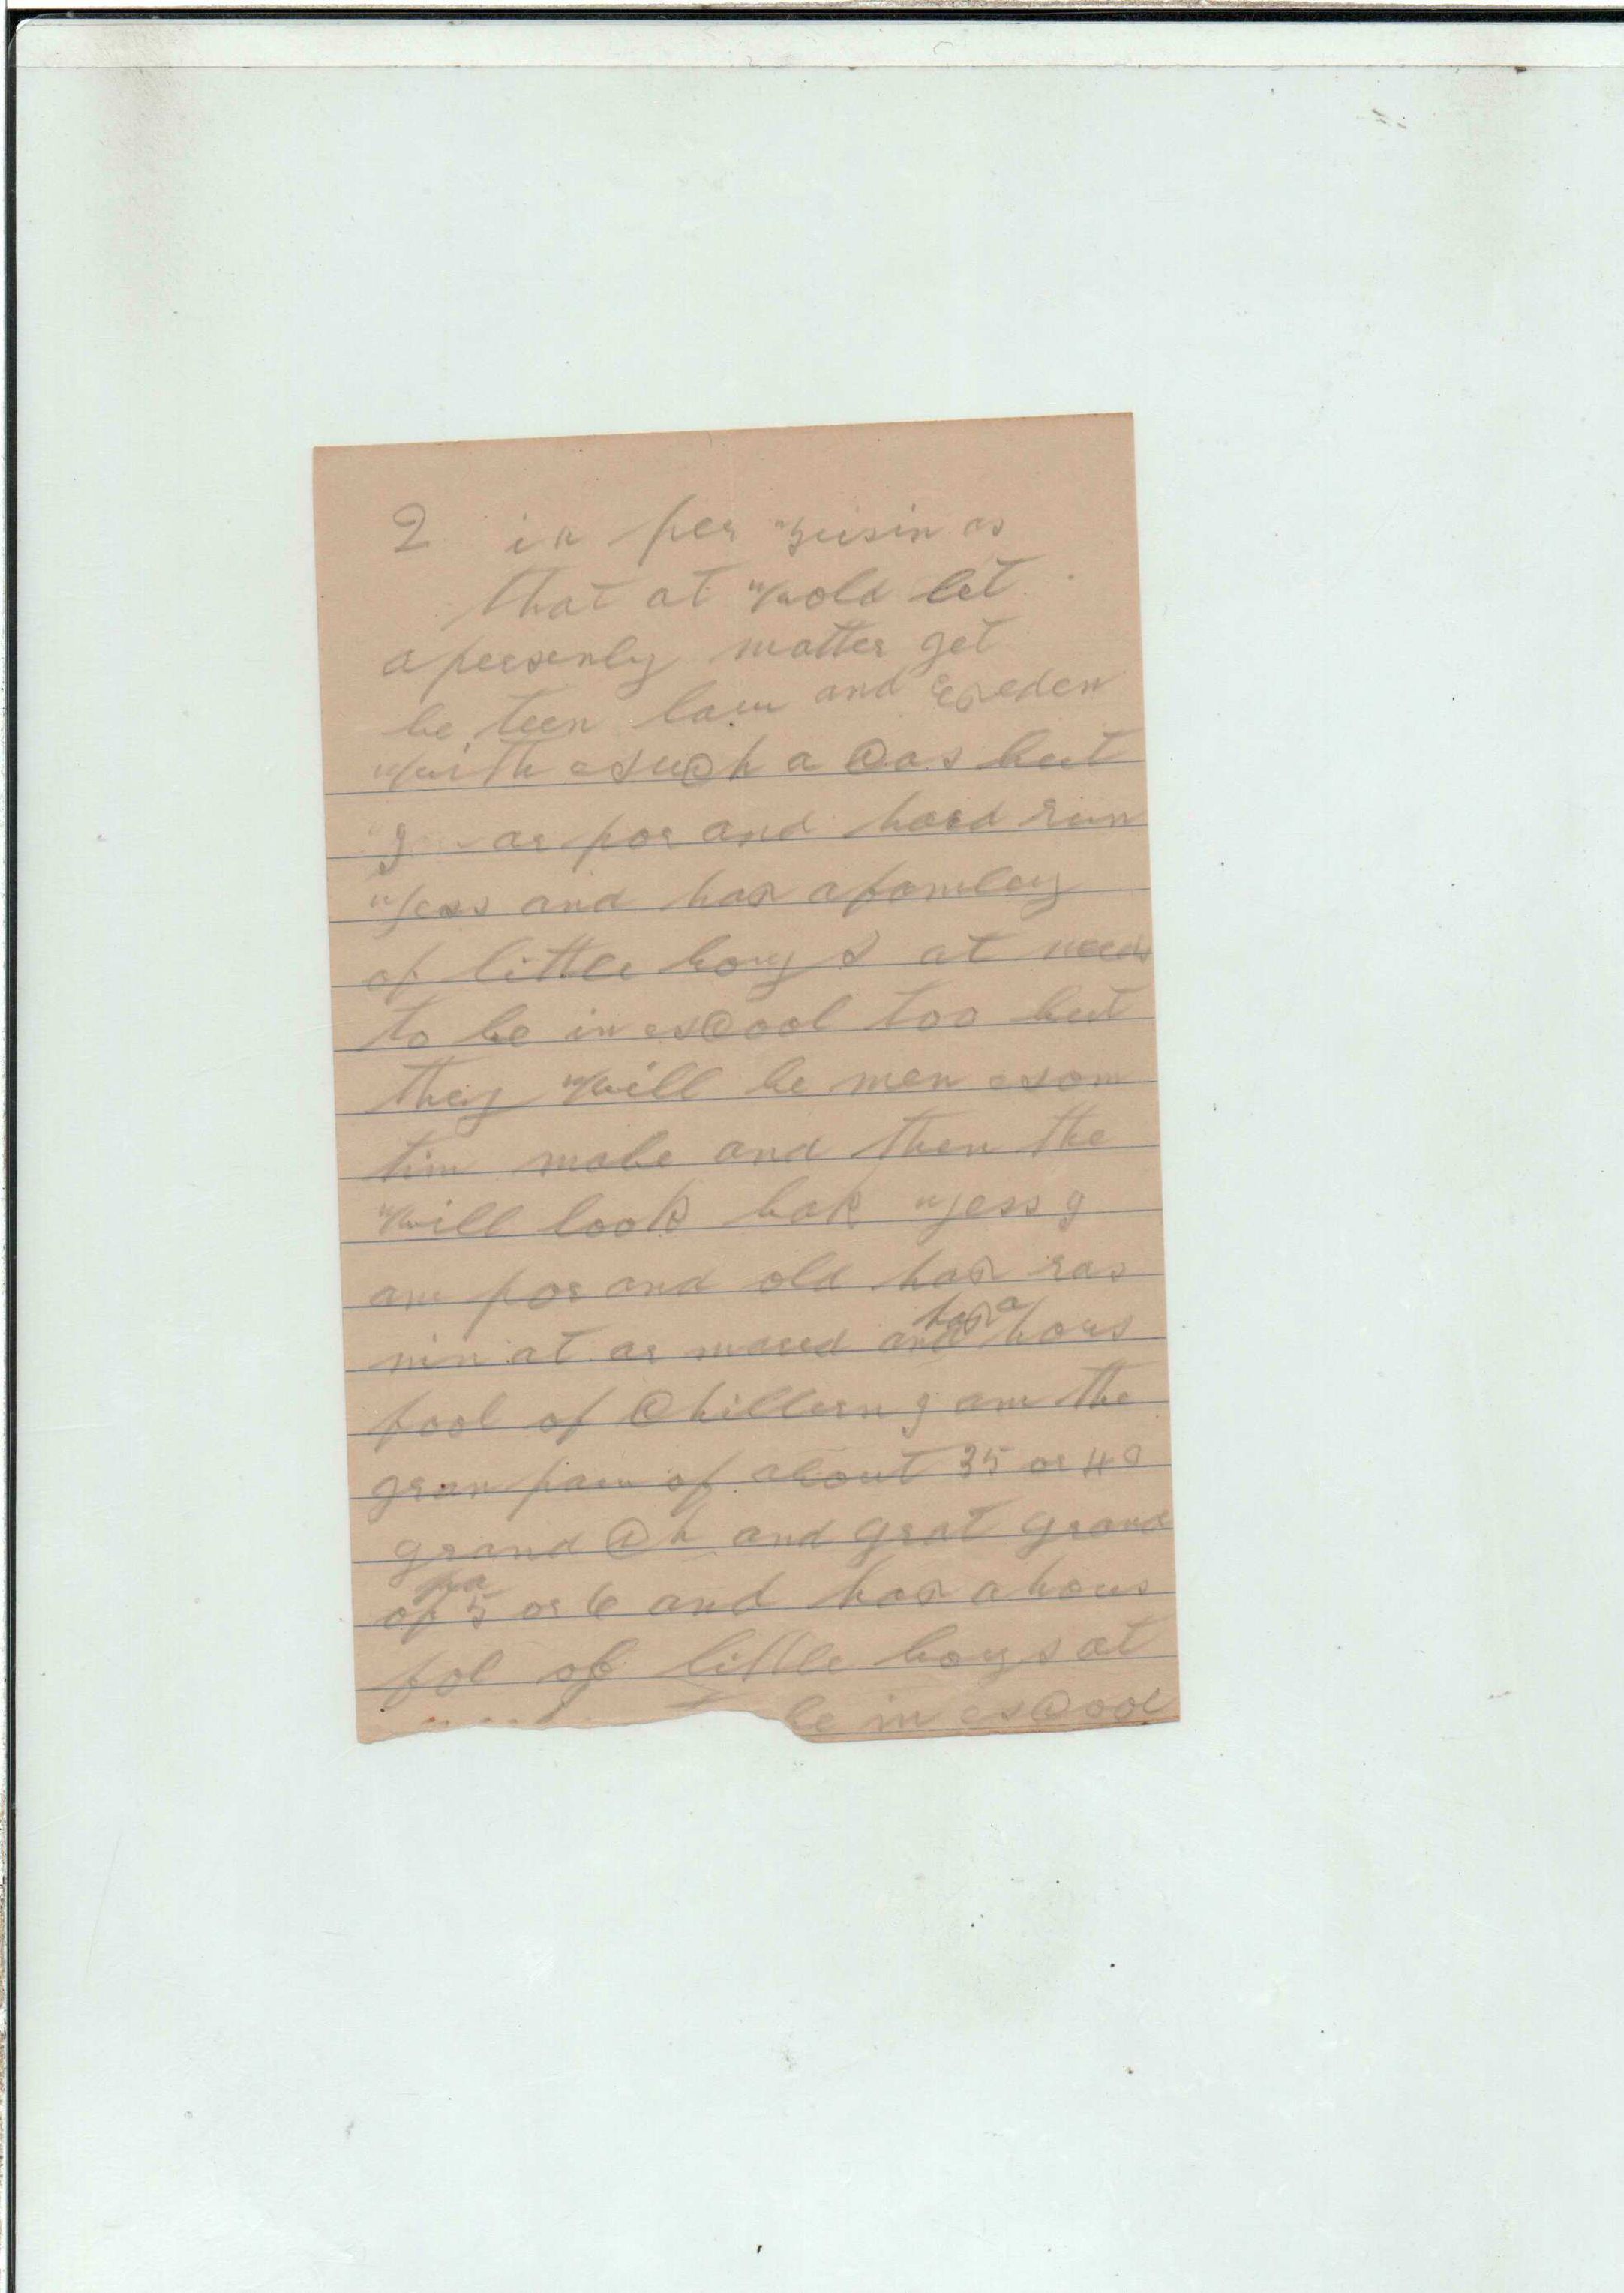 2 in per
that at wold let
a persenly matter get
be teen law and
with such a Cas but
g ar por and hard run
yess and hav a famley
of little boys at need
to be in sCool too but
they will be men som
tim mabe and then the
will look bak yess g
am por and old hav ras
nin at ar mared and hav a hous
fool of Chillern g am the
gran paw of about 35 or 40
grand Ch and grat grand
pa of 5 or 6 and hav a hous
fol of little boys at
be in sCool